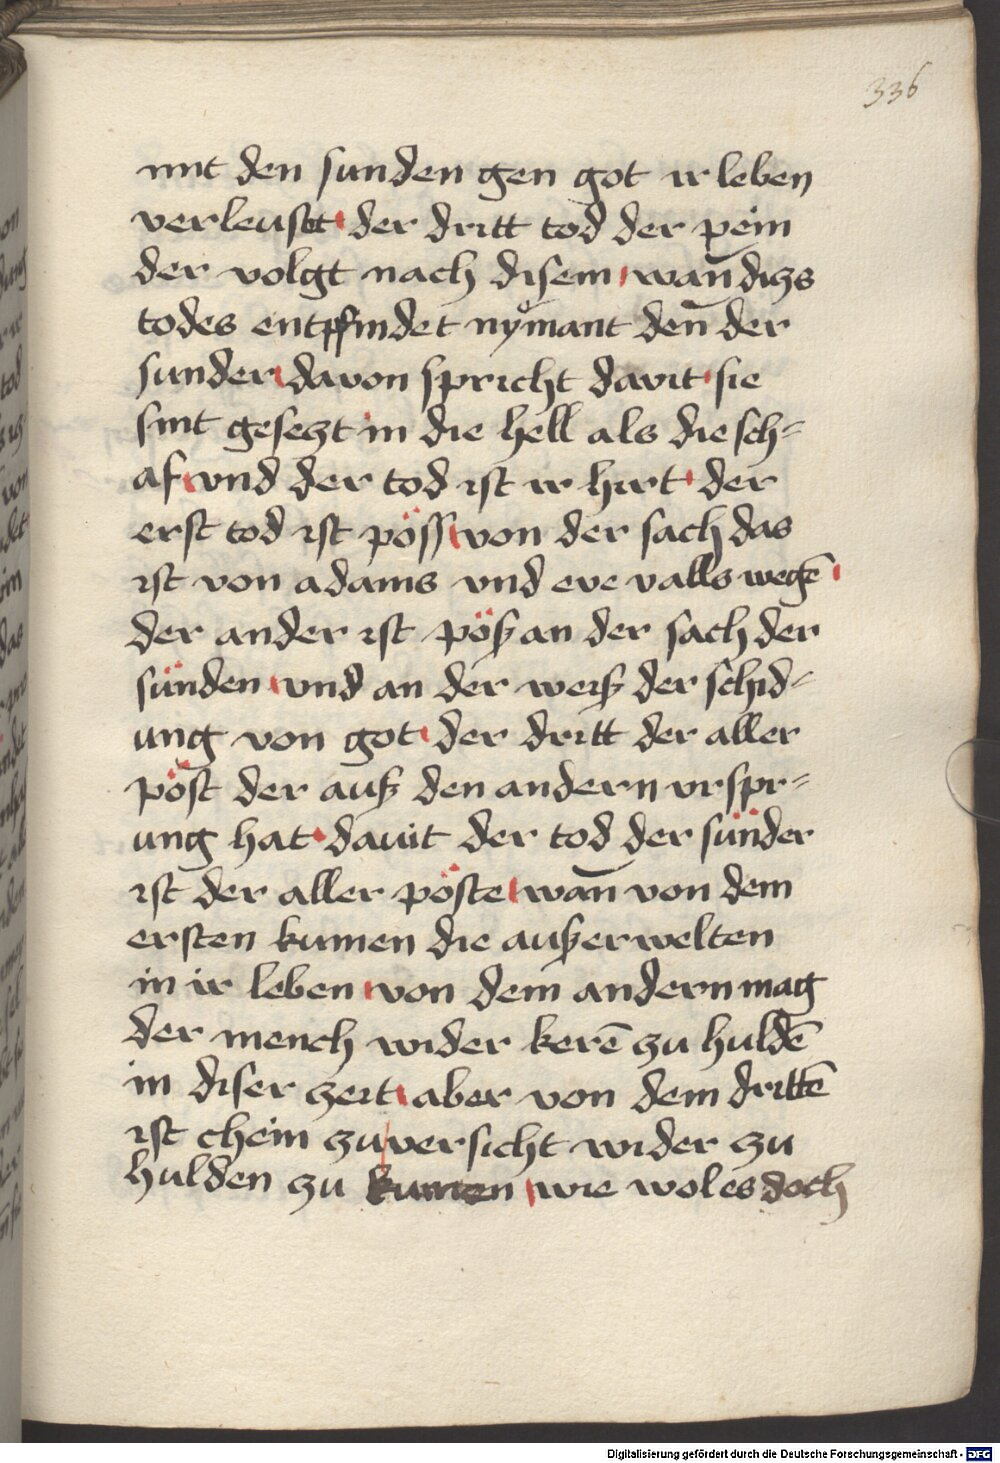 336
mit den sunden gen got ir leben
verleust der dritt tod der pein
der volgt nach disem wan̄ dizs
todes entpfindet nymant den̄ der
sunder davon spricht davit sie
sint gesezt in die hell als die sch-
af vnd der tod ist ir hirt der
erst tod ist pöss von der sach das
ist von adams vnd eve valls wegē
der ander ist pöß an der sach der
sünden vnd an der weiß der schid-
ung von got der dritt der aller
pöst der auß den andern vrspr-
ung hat dauit der tod der sünder
ist der aller pöste wan̄ von dem
ersten kumen die außerwelten
in ir leben von dem andern mag
der mench wider kerē zu huldē
in diser zeit aber von dem drittē
ist chein zuversicht wider zu
hulden zu kumen wie wol es doch
Digitalisierung gefördert durch die Deutsche Forschungsgemeinschaft - DFG